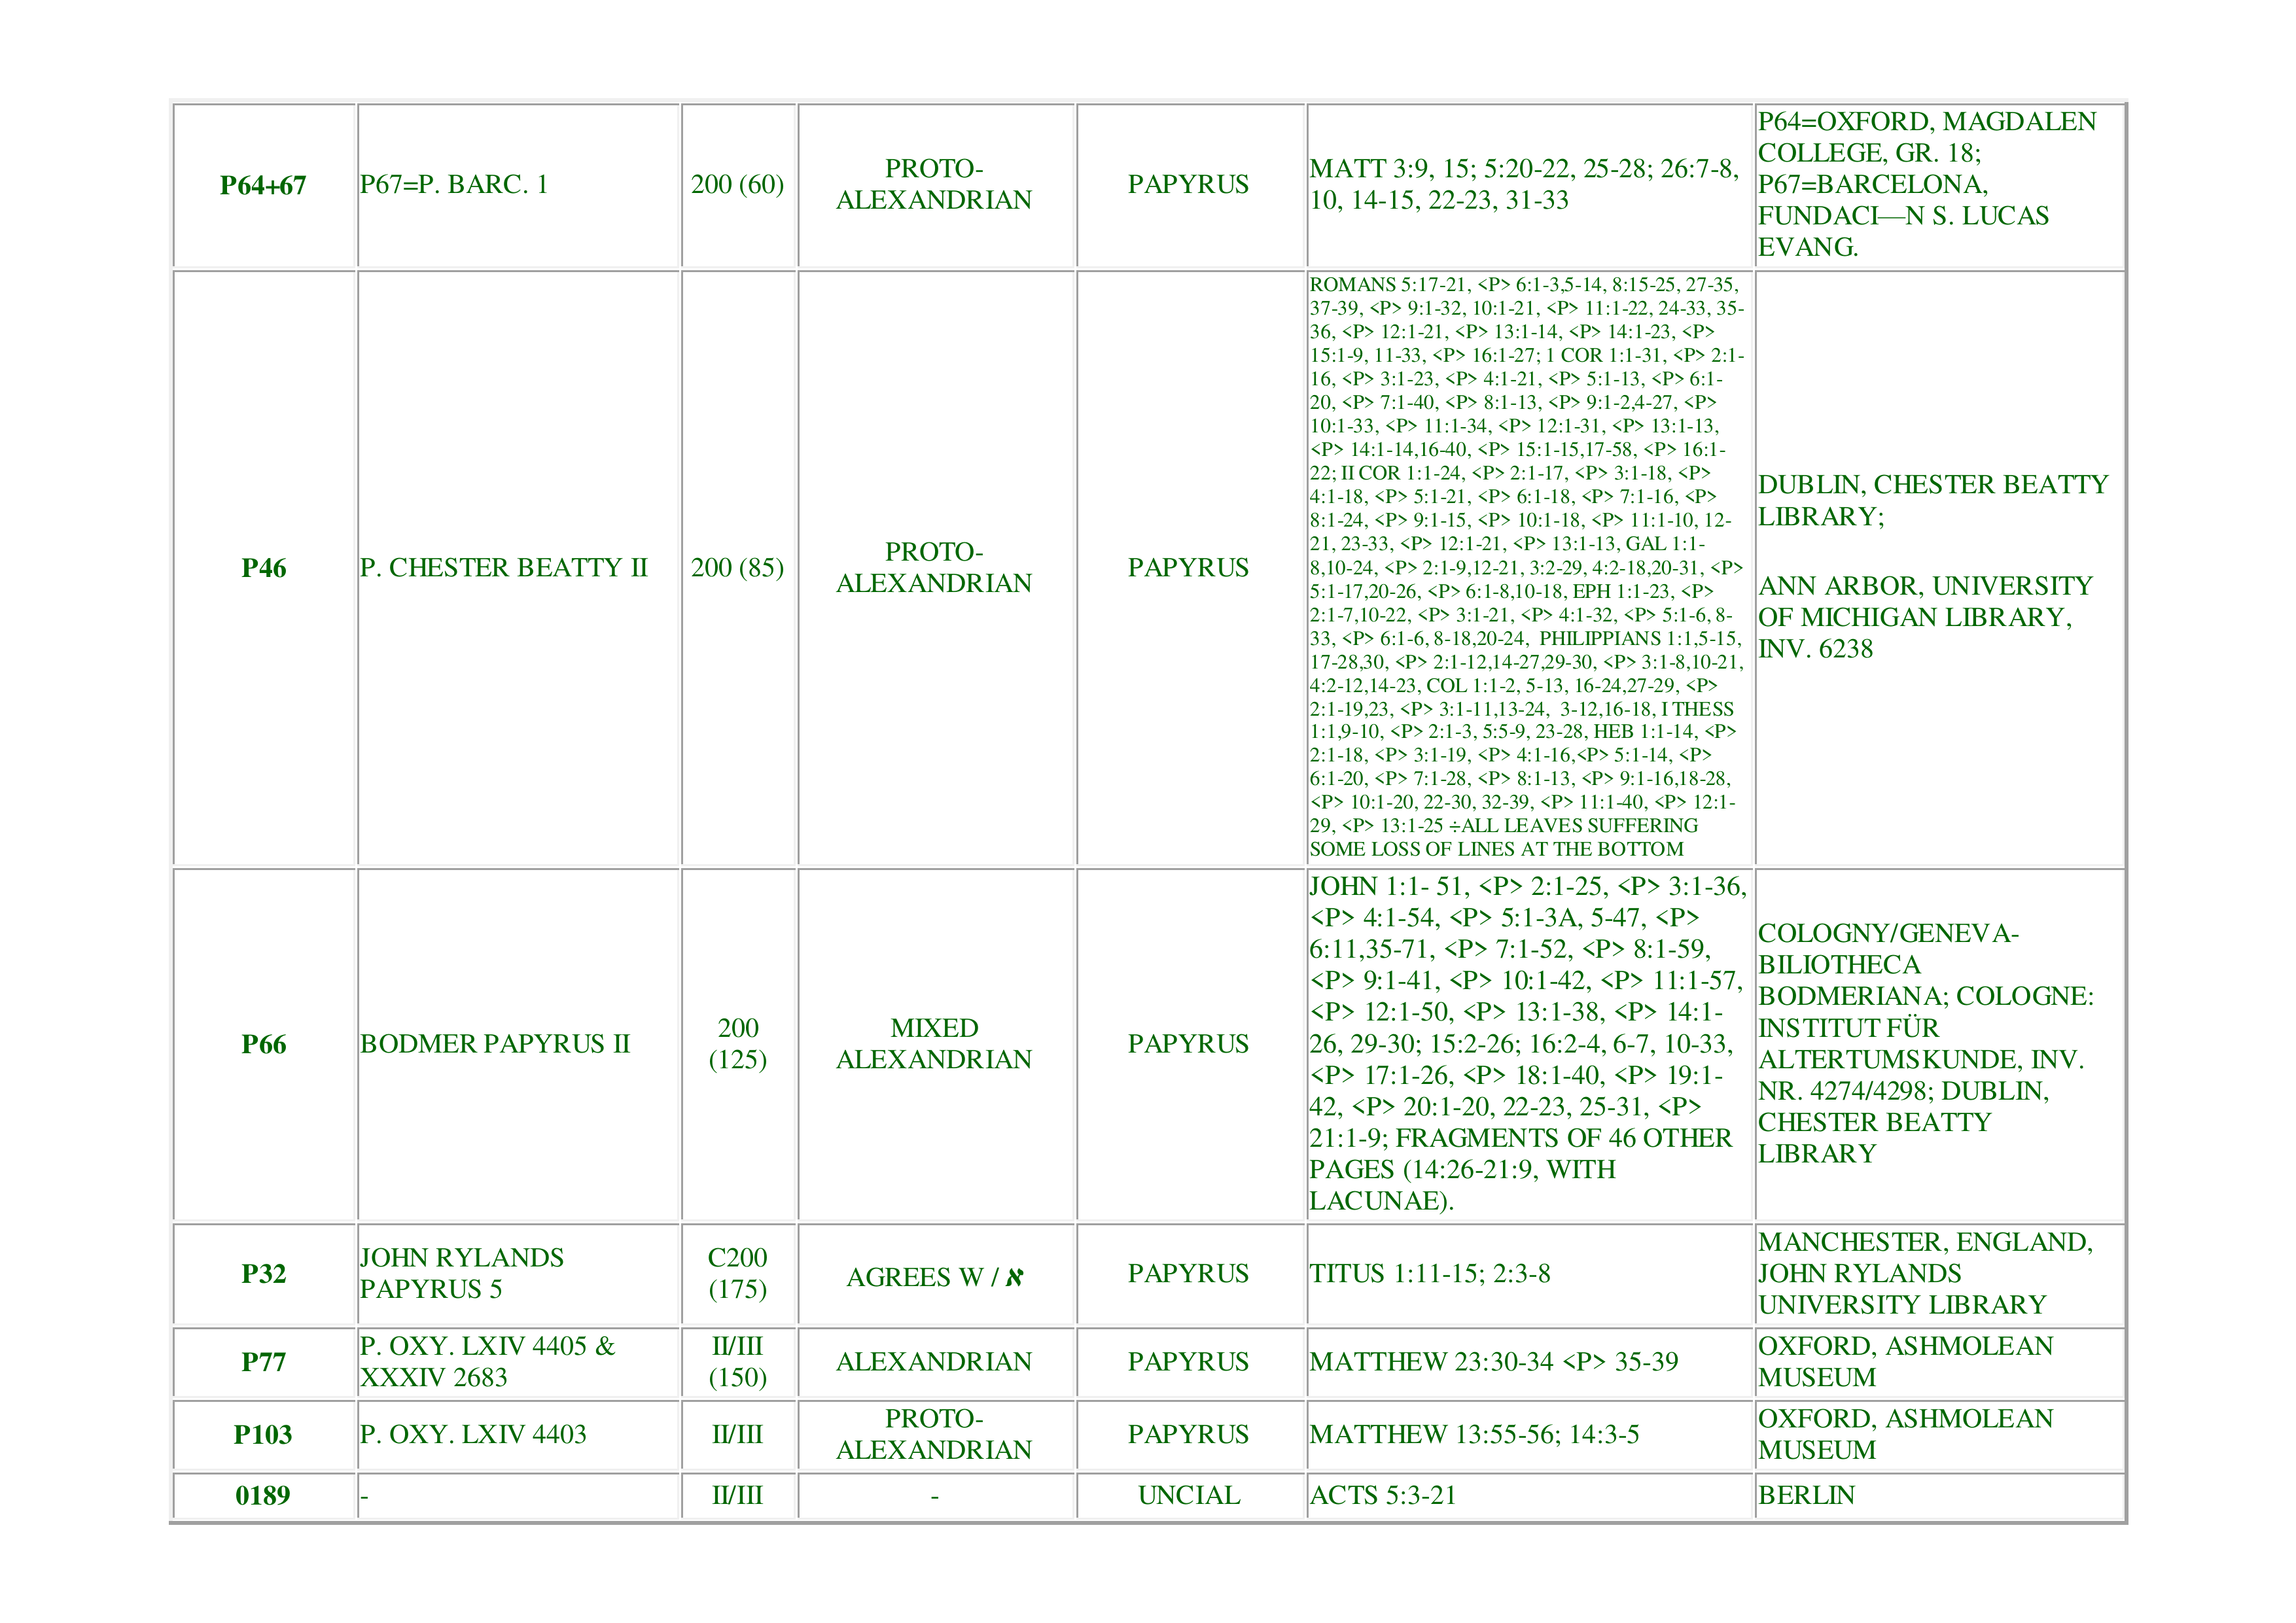 P64+67
P67=P. BARC. 1
200 (60)
PROTO-
ALEXANDRIAN
PAPYRUS
MATT 3:9, 15; 5:20-22, 25-28; 26:7-8,
10, 14-15, 22-23, 31-33
P64=OXFORD, MAGDALEN
COLLEGE, GR. 18;
P67=BARCELONA,
FUNDACI—N S. LUCAS
EVANG.
P46
P. CHESTER BEATTY II
200 (85)
PROTO-
ALEXANDRIAN
PAPYRUS
ROMANS 5:17-21, <P> 6:1-3,5-14, 8:15-25, 27-35,
37-39, <P> 9:1-32, 10:1-21, <P> 11:1-22, 24-33, 35-
36, <P> 12:1-21, <P> 13:1-14, <P> 14:1-23, <P>
15:1-9, 11-33, <P> 16:1-27; 1 COR 1:1-31, <P> 2:1-
16, <P> 3:1-23, <P> 4:1-21, <P> 5:1-13, <P> 6:1-
20, <P> 7:1-40, <P> 8:1-13, <P> 9:1-2,4-27, <P>
10:1-33, <P> 11:1-34, <P> 12:1-31, <P> 13:1-13,
<P> 14:1-14,16-40, <P> 15:1-15,17-58, <P> 16:1-
22; II COR 1:1-24, <P> 2:1-17, <P> 3:1-18, <P>
4:1-18, <P> 5:1-21, <P> 6:1-18, <P> 7:1-16, <P>
8:1-24, <P> 9:1-15, <P> 10:1-18, <P> 11:1-10, 12-
21, 23-33, <P> 12:1-21, <P> 13:1-13, GAL 1:1-
8,10-24, <P> 2:1-9,12-21, 3:2-29, 4:2-18,20-31, <P>
5:1-17,20-26, <P> 6:1-8,10-18, EPH 1:1-23, <P>
2:1-7,10-22, <P> 3:1-21, <P> 4:1-32, <P> 5:1-6, 8-
33, <P> 6:1-6, 8-18,20-24, PHILIPPIANS 1:1,5-15,
17-28,30, <P> 2:1-12,14-27,29-30, <P> 3:1-8,10-21,
4:2-12,14-23, COL 1:1-2, 5-13, 16-24,27-29, <P>
2:1-19,23, <P> 3:1-11,13-24, 3-12,16-18, I THESS
1:1,9-10, <P> 2:1-3, 5:5-9, 23-28, HEB 1:1-14, <P>
2:1-18, <P> 3:1-19, <P> 4:1-16,<P> 5:1-14, <P>
6:1-20, <P> 7:1-28, <P> 8:1-13, <P> 9:1-16,18-28,
<P> 10:1-20, 22-30, 32-39, <P> 11:1-40, <P> 12:1-
29, <P> 13:1-25 ÷ALL LEAVES SUFFERING
SOME LOSS OF LINES AT THE BOTTOM
DUBLIN, CHESTER BEATTY
LIBRARY;
ANN ARBOR, UNIVERSITY
OF MICHIGAN LIBRARY,
INV. 6238
P66
BODMER PAPYRUS II
200
(125)
MIXED
ALEXANDRIAN
PAPYRUS
JOHN 1:1- 51, <P> 2:1-25, <P> 3:1-36,
<P> 4:1-54, <P> 5:1-3A, 5-47, <P>
6:11,35-71, <P> 7:1-52, <P> 8:1-59,
<P> 9:1-41, <P> 10:1-42, <P> 11:1-57,
<P> 12:1-50, <P> 13:1-38, <P> 14:1-
26, 29-30; 15:2-26; 16:2-4, 6-7, 10-33,
<P> 17:1-26, <P> 18:1-40, <P> 19:1-
42, <P> 20:1-20, 22-23, 25-31, <P>
21:1-9; FRAGMENTS OF 46 OTHER
PAGES (14:26-21:9, WITH
LACUNAE).
COLOGNY/GENEVA-
BILIOTHECA
BODMERIANA; COLOGNE:
INSTITUT FÜR
ALTERTUMSKUNDE, INV.
NR. 4274/4298; DUBLIN,
CHESTER BEATTY
LIBRARY
P32
JOHN RYLANDS
PAPYRUS 5
C200
(175)
AGREES W / א
PAPYRUS
TITUS 1:11-15; 2:3-8
MANCHESTER, ENGLAND,
JOHN RYLANDS
UNIVERSITY LIBRARY
P77
P. OXY. LXIV 4405 &
XXXIV 2683
II/III
(150)
ALEXANDRIAN
PAPYRUS
MATTHEW 23:30-34 <P> 35-39
OXFORD, ASHMOLEAN
MUSEUM
P103
P. OXY. LXIV 4403
II/III
PROTO-
ALEXANDRIAN
PAPYRUS
MATTHEW 13:55-56; 14:3-5
OXFORD, ASHMOLEAN
MUSEUM
0189
-
II/III
-
UNCIAL
ACTS 5:3-21
BERLIN